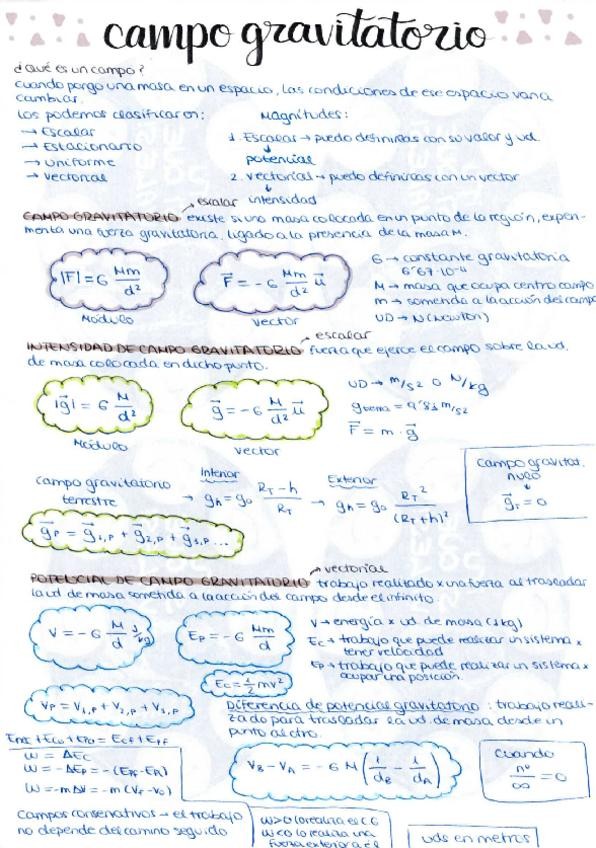 campo gravitatorio
¿Qué es un campo?
cuando pongo una masa en un espacio, las condiciones de ese espacio van a
cambiar.
Los podemos clasificar en:
→ Escalar
→ Estacionario
→ Uniforme
→ Vectorial
Magnitudes:
1. Escalar → puedo definirlas con su valor y ud.
↓
potencial
2. vectorial → puedo definirlas con un vector
↓
intensidad
→ escalar
CAMPO GRAVITATORIO existe si una masa colocada en un punto de la región, experi-
menta una fuerza gravitatoria, ligado a la presencia de la masa M.
|F| = G Mm/d²
Módulo
F⃗ = - G Mm/d² u⃗
vector
G → constante gravitatoria
6'67·10⁻⁴
M → masa que ocupa centro campo
m → sometida a la acción del campo
UD → N (Newton)
→ escalar
INTENSIDAD DE CAMPO GRAVITATORIO fuerza que ejerce el campo sobre la ud.
de masa colocada en dicho punto.
|g| = G M/d²
Módulo
g⃗ = - G M/d² u⃗
vector
UD → m/s² o N/kg
= 9'81 m/s²
F⃗ = m · g⃗
campo gravitatorio
terrestre
→
Interior
gh = g0 (RT - h)/RT
→
Exterior
gh = g0 RT²/(RT + h)²
Campo gravitat.
nulo
↓
g⃗T = 0
g⃗P = g⃗1,P + g⃗2,P + g⃗3,P ...
→ vectorial
POTENCIAL DE CAMPO GRAVITATORIO trabajo realizado x una fuerza al trasladar
la ud de masa sometida a la acción del campo desde el infinito.
V = - G M/d J/kg
Ep = - G Mm/d
V → energía x ud. de masa (1kg)
Ec → trabajo que puede realizar un sistema x
tener velocidad
Ep → trabajo que puede realizar un sistema x
ocupar una posición.
Ec = 1/2 mv²
VP = V1,P + V2,P + V3,P
Diferencia de potencial gravitatorio : trabajo reali-
zado para trasladar la ud. de masa desde un
punto al otro.
+ Ec0 + Ep0 = Ecf + Epf
W = ΔEc
W = - ΔEp = - (Epf - )
W = - m ΔV = - m (Vf - V0)
VB - VA = - G M (1/dB - 1/dA)
Cuando
nº/∞ = 0
Campos conservativos → el trabajo
no depende del camino seguido
W>0 lo realiza el CG
W<0 lo realiza una
fuerza exterior a él
uds en metros